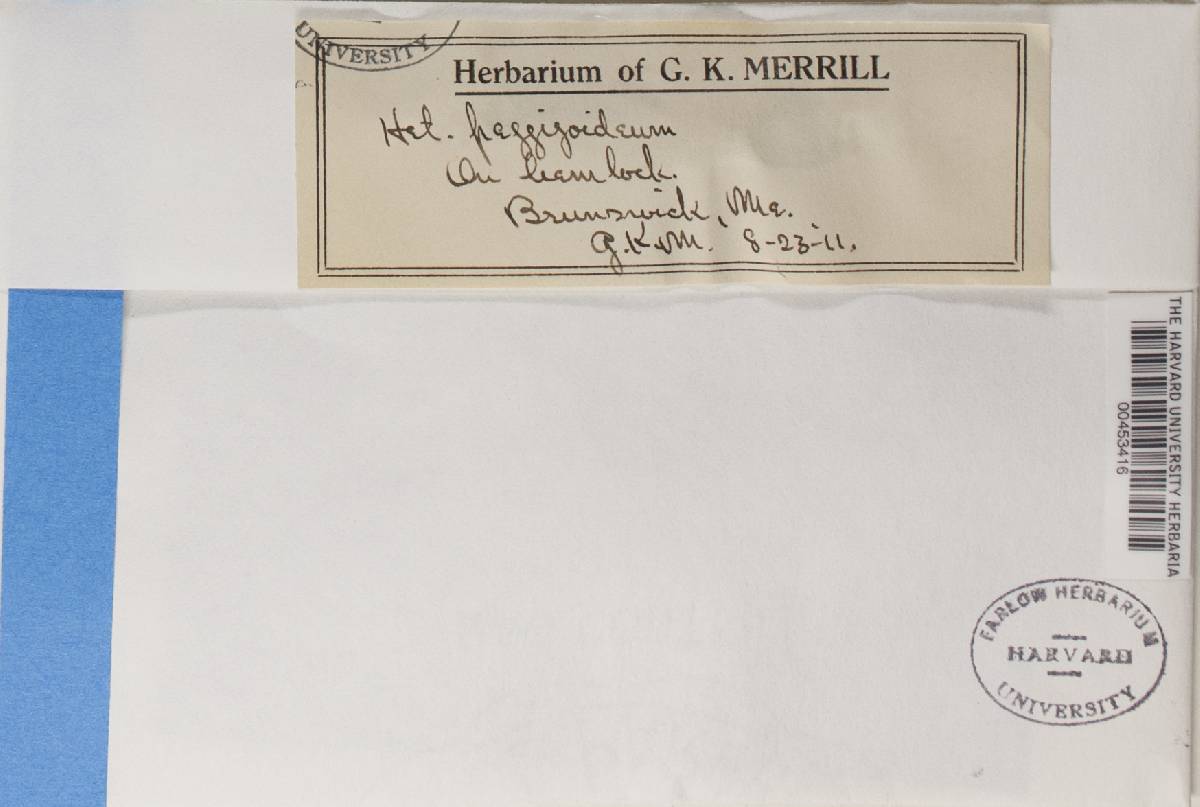 UNIVERSITY
Herbarium of G. K. MERRILL
Het. pezzizoideum
On hemlock.
Brunswick, Me.
G.K.M. 8-23-11.
THE HARVARD UNIVERSITY HERBARIA
00453416
FARLOW HERBARIUM
HARVARD
UNIVERSITY